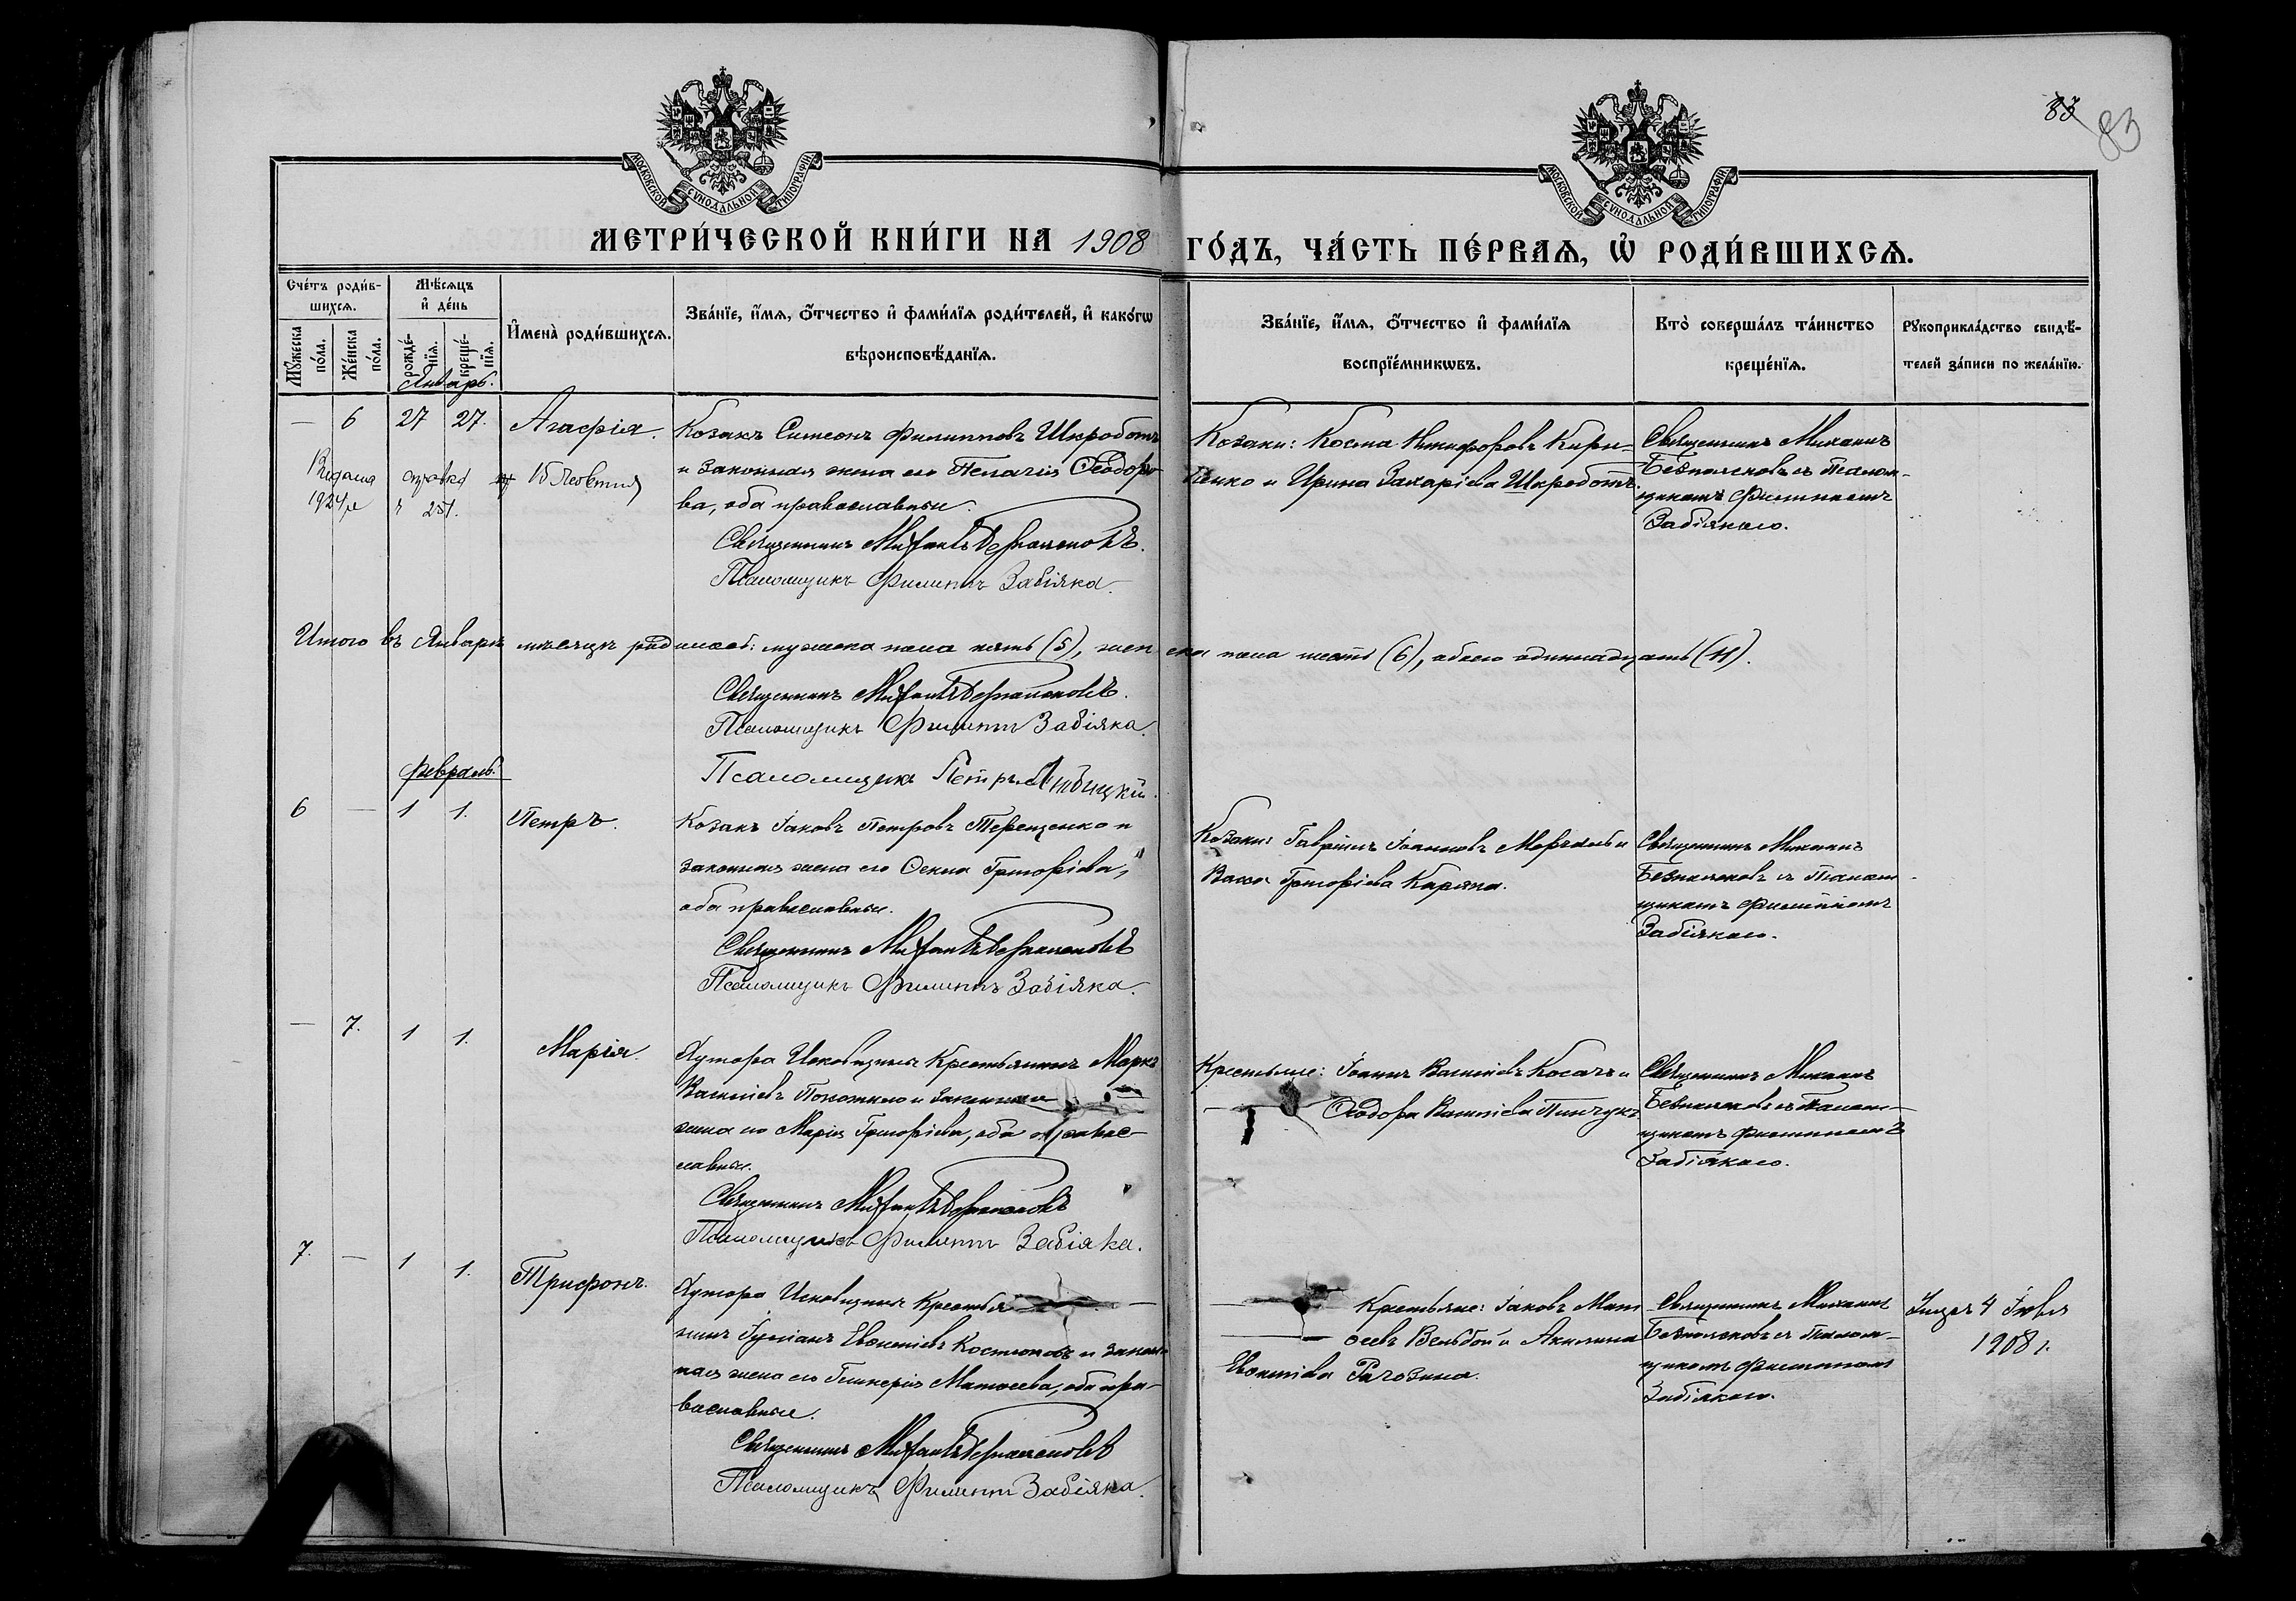 83
83
МОСКОВСКОЙ СѴНОДАЛЬНОЙ ТИПОГРАФІИ
МОСКОВСКОЙ СѴНОДАЛЬНОЙ ТИПОГРАФІИ
МЕТРИ́ЧЕСКОЙ КНИ́ГИ НА 1908 ГО́ДЪ, ЧА́СТЬ ПЕ́РВАѦ, Ѡ҆ РОДИ́ВШИХСѦ.
Сче́тъ роди́в-
шихсѧ.
Мꙋ́жеска по́ла.
Же́нска по́ла.
Мѣ́сѧцъ
и҆ де́нь
рожде́-
нїѧ.
креще́-
нїѧ.
И҆мена̀ роди́вшихсѧ.
Зва́нїе, и҆́мѧ, ѻ҆́тчество и҆ фами́лїѧ роди́телей, и҆ како́гѡ
вѣроисповѣ́данїѧ.
Зва́нїе, и҆́мѧ, ѻ҆́тчество и҆ фами́лїѧ
воспрїе́мникѡвъ.
Кто̀ соверша́лъ та́инство
креще́нїѧ.
Рꙋкоприкла́дство свидѣ́-
телей за́писи по жела́нїю.
Январь.
— 6 27 27. Агафія.
Козакъ Симеонъ Филипповъ Шкроботъ
и законная жена его Пелагія Ѳеодоро-
ва, оба православные.
Священникъ Михаилъ Безпалековъ.
Псаломщикъ Филиппъ Забіяка.
Козаки: Косма Никифоровъ Кири-
ченко и Ирина Захаріева Шкроботъ.
Священникъ Михаилъ
Безпалековъ съ Псалом-
щикомъ Филиппомъ
Забіякою.
Видана справка
1924 р.
Итого въ Январѣ мѣсяцѣ родилось: мужеска пола пять (5), женска пола шесть (6), обоего одиннадцать (11).
Священникъ Михаилъ Безпалековъ.
Псаломщикъ Филиппъ Забіяка.
Псаломщикъ Петръ
Февраль.
6 — 1 1. Петръ.
Козакъ Іаковъ Петровъ Терещенко и
законная жена его Ѳекла Григоріева,
оба православные.
Священникъ Михаилъ Безпалековъ
Псаломщикъ Филиппъ Забіяка.
Козаки: Гавріилъ Іоанновъ и
Васса Григоріева
Священникъ Михаилъ
Безпалековъ съ Псалом-
щикомъ Филиппомъ
Забіякою.
— 7. 1 1. Марія.
Хутора Крестьянинъ Маркъ
Василіевъ и законная
жена его Марія Григоріева, оба правос-
лавные.
Священникъ Михаилъ Безпалековъ
Псаломщикъ Филиппъ Забіяка.
Крестьяне: Іоаннъ Василіевъ Косачъ и
Ѳеодора Василіева Пинчукъ
Священникъ Михаилъ
Безпалековъ съ Псалом-
щикомъ Филиппомъ
Забіякою.
7. — 1 1. Трифонъ.
Хутора Крестья-
нинъ Іуліанъ Костюковъ и закон-
ная жена его Гликерія Матѳеева, оба пра-
вославные.
Священникъ Михаилъ Безпалековъ
Псаломщикъ Филиппъ Забіяка.
Крестьяне: Іаковъ Мат-
ѳеевъ и Акилина
Рагозина.
Священникъ Михаилъ
Безпалековъ съ Псалом-
щикомъ Филиппомъ
Забіякою.
4
1908 г.